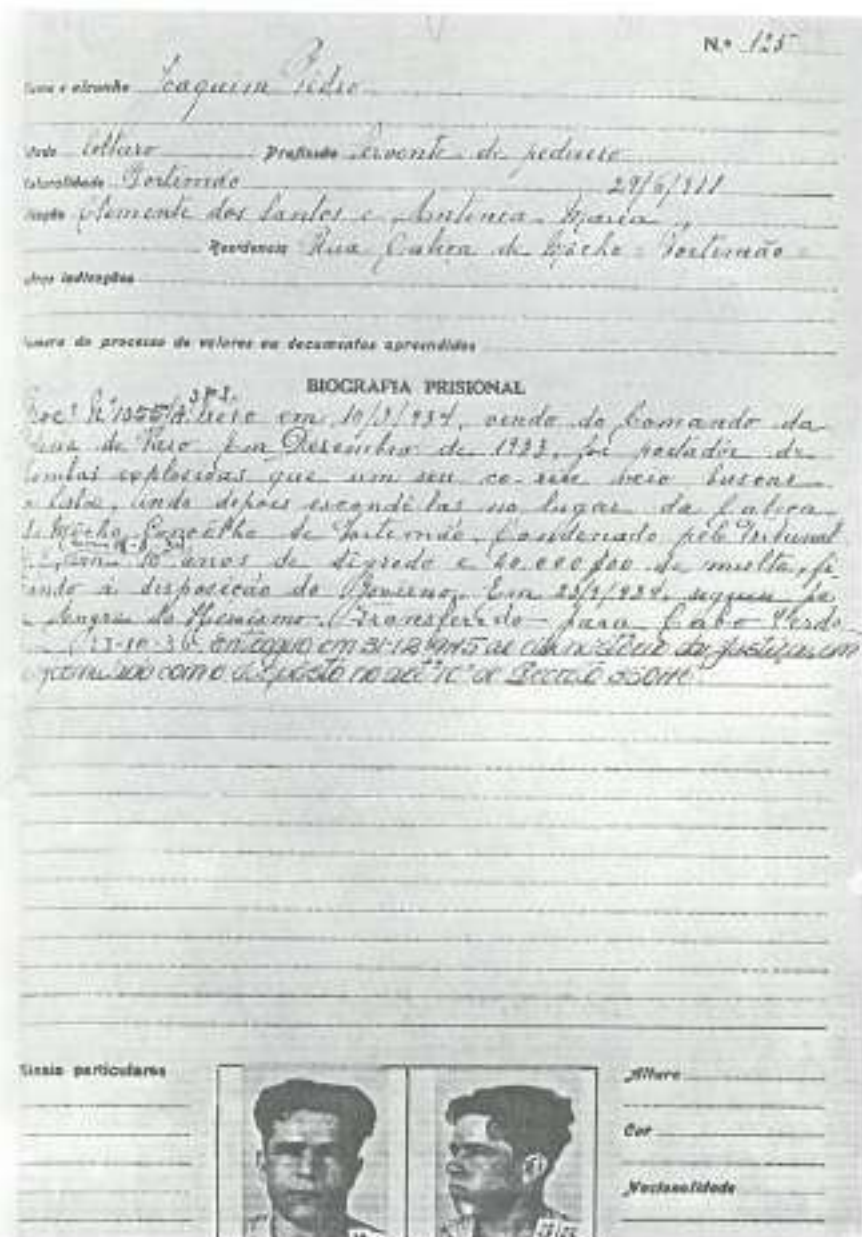 N.º 125
Nome e alcunha Joaquim Pedro
Estado Solteiro Profissão Servente de pedreiro
Naturalidade Portimão 29/6/911
Filiação Clemente dos Santos e Antónia Maria
Residencia Rua Cabeça do Mocho - Portimão
indicações
do processo de valores ou documentos apreendidos
BIOGRAFIA PRISIONAL
Proc.º N.º 1355/ veio em 10/3/934, vindo do Comando da
de Faro. Em Dezembro de 1933, foi portador de
bombas explosivas que um seu co-réu veio buscar
a Lisboa, indo depois escondê-las no lugar da Cabeça
do Mocho, Concelho de Portimão. Condenado pelo Tribunal
em 10 anos de degredo e de multa, fi
cando à disposição do Governo. Em 23/9/934, seguiu pa
ra Angra do Heroismo. Transferido para Cabo Verde
em 23-10-36. entregue em 31-12-945 ao ministério da Justiça, em
como disposto no artº
Sinais particulares
Altura
Cor
Nacionalidade